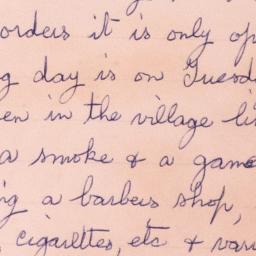 orders it is only op
g day is on Tuesd
en in the village li
a smoke & a game
ng a barbers shop,
, cigarettes, etc & vari